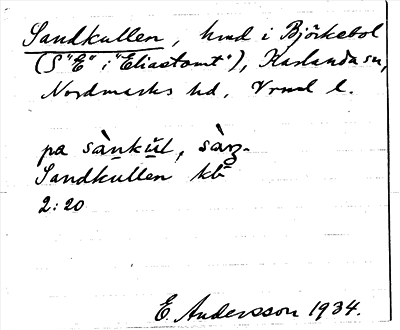 Sandkullen, hmd i Björkebol
(S "E" i "Eliastomt"), Karlanda sn,
Nordmarks hd, Vrml l.
pa sànkul, sàŋ-
Sandkullen kb
2:20
E Andersson 1934.